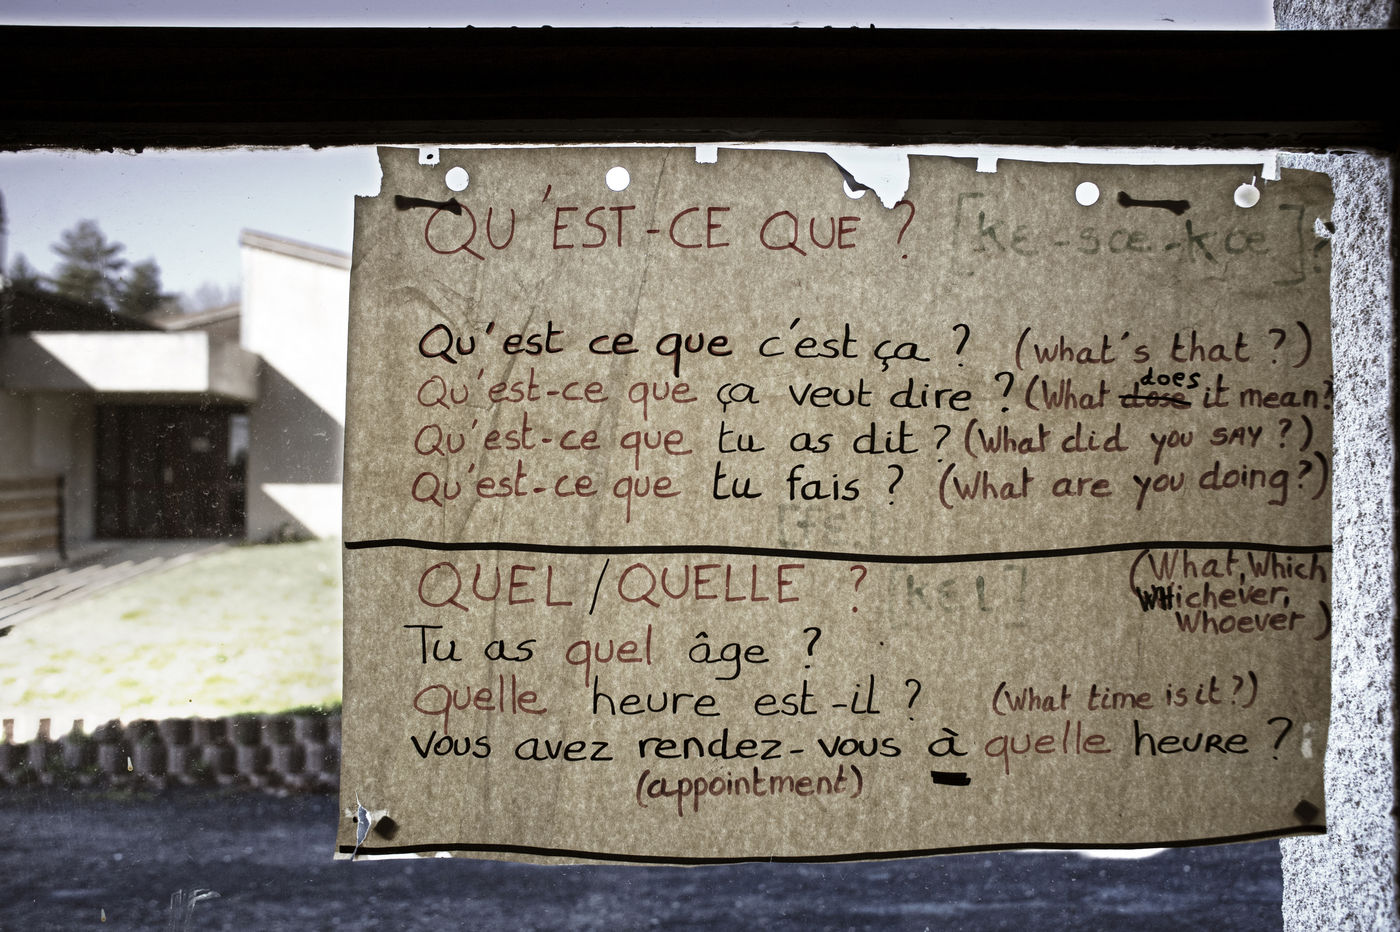 QU'EST-CE QUE ? [kɛ-sœ-kœ]?
Qu'est ce que c'est ça ? (what's that ?)
Qu'est-ce que ça veut dire ? (What dose does it mean?
Qu'est-ce que tu as dit ? (What did you SAY ?)
Qu'est-ce que tu fais ? (What are you doing?)
[fɛ]
QUEL/QUELLE ? [kɛl] (What, Which
Whichever,
Whoever )
Tu as quel âge ?
quelle heure est-il ? (What time is it ?)
vous avez rendez-vous à quelle heure ?
(appointment)